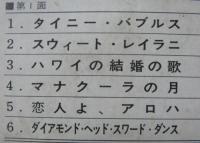 ■第1面
1. タイニー・バブルス
2. スウィート・レイラニ
3. ハワイの結婚の歌
4. マナクーラの月
5. 恋人よ、アロハ
6. ダイアモンド・ヘッド・スワード・ダンス